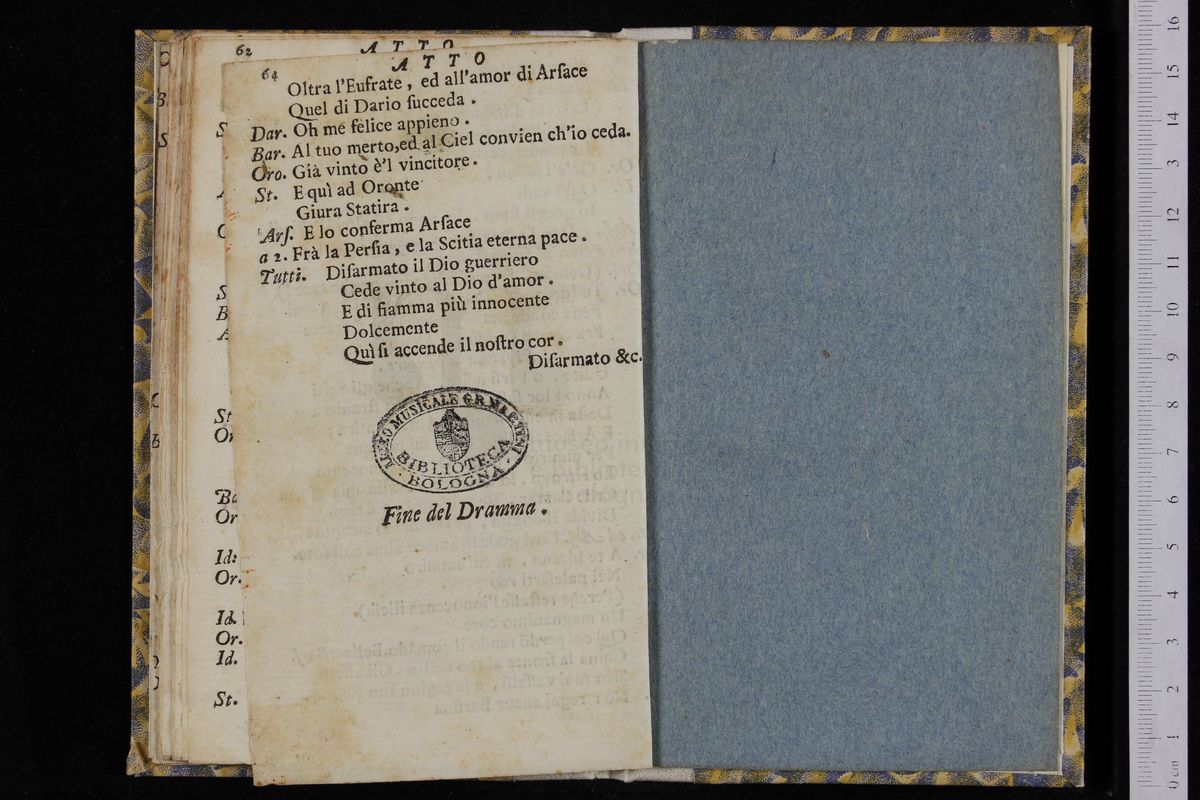 62 ATTO
64 ATTO
Oltra l'Eufrate, ed all'amor di Arſace
Quel di Dario ſucceda.
Dar. Oh me felice appieno.
Bar. Al tuo merto,ed al Ciel convien ch'io ceda.
Oro. Già vinto è'l vincitore.
St. E quì ad Oronte
Giura Statira.
Arſ. E lo conferma Arſace
a 2. Frà la Perſia, e la Scitia eterna pace.
Tutti. Diſarmato il Dio guerriero
Cede vinto al Dio d'amor.
E di fiamma più innocente
Dolcemente
Quì ſi accende il noſtro cor.
Diſarmato &c.
MUSICALE
BIBLIOTECA
BOLOGNA
Fine del Dramma.
St
Or
Ba
Or
Id:
Or.
Id.
Or.
Id.
St.
0 cm 1 2 3 4 5 6 7 8 9 10 11 12 3 14 15 16